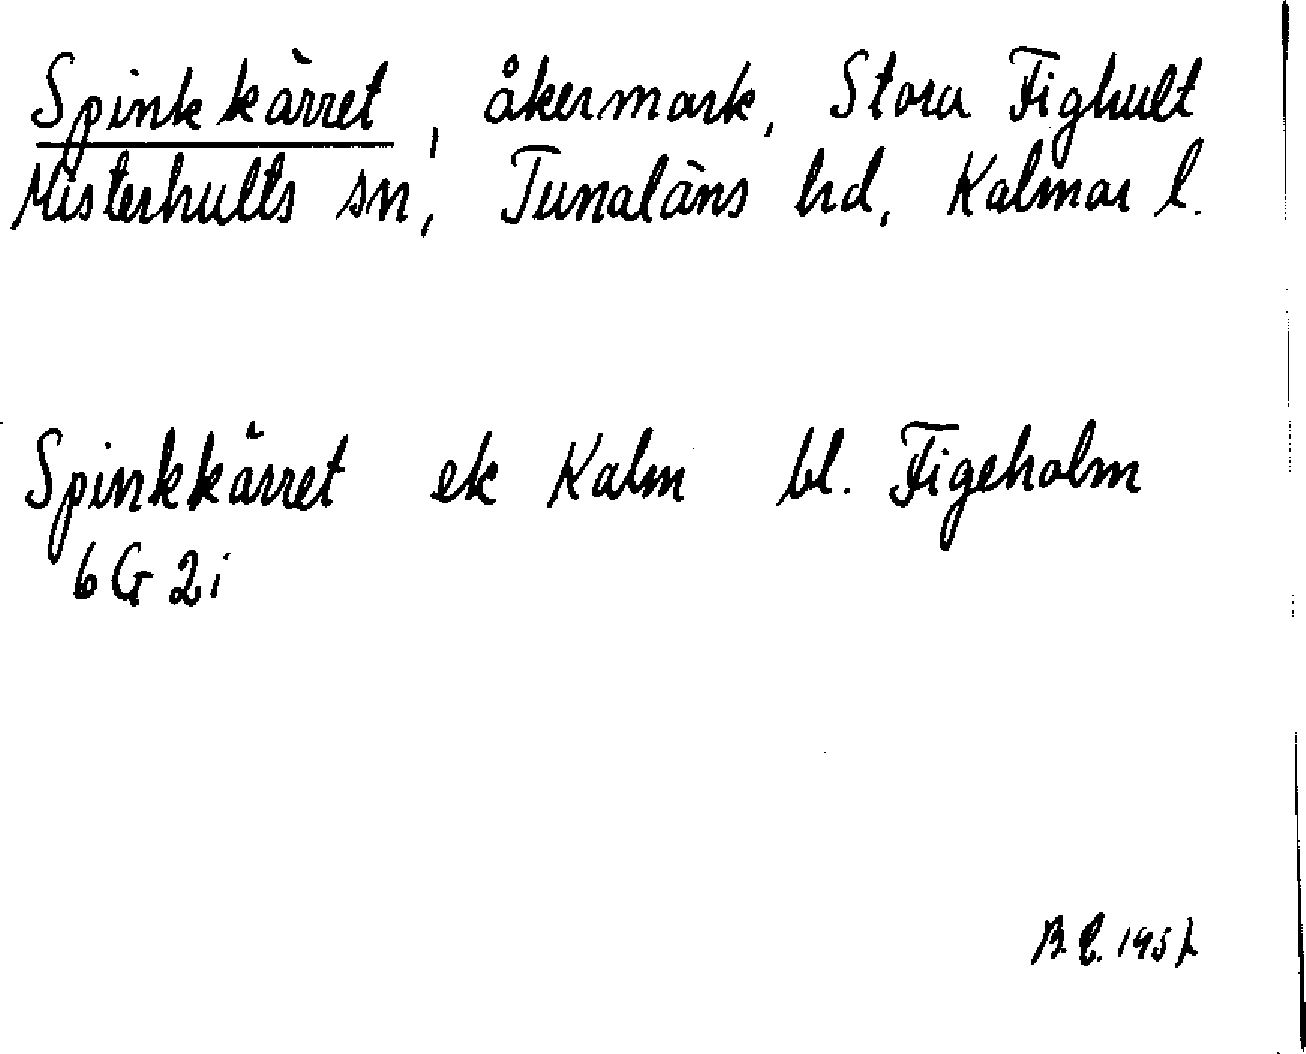 Spinkkärret, åkermark, Stora Fighult
Misterhults sn, Tunaläns hd, Kalmar l.
Spinkkärret ek Kalm bl. Figeholm
6 G 2i